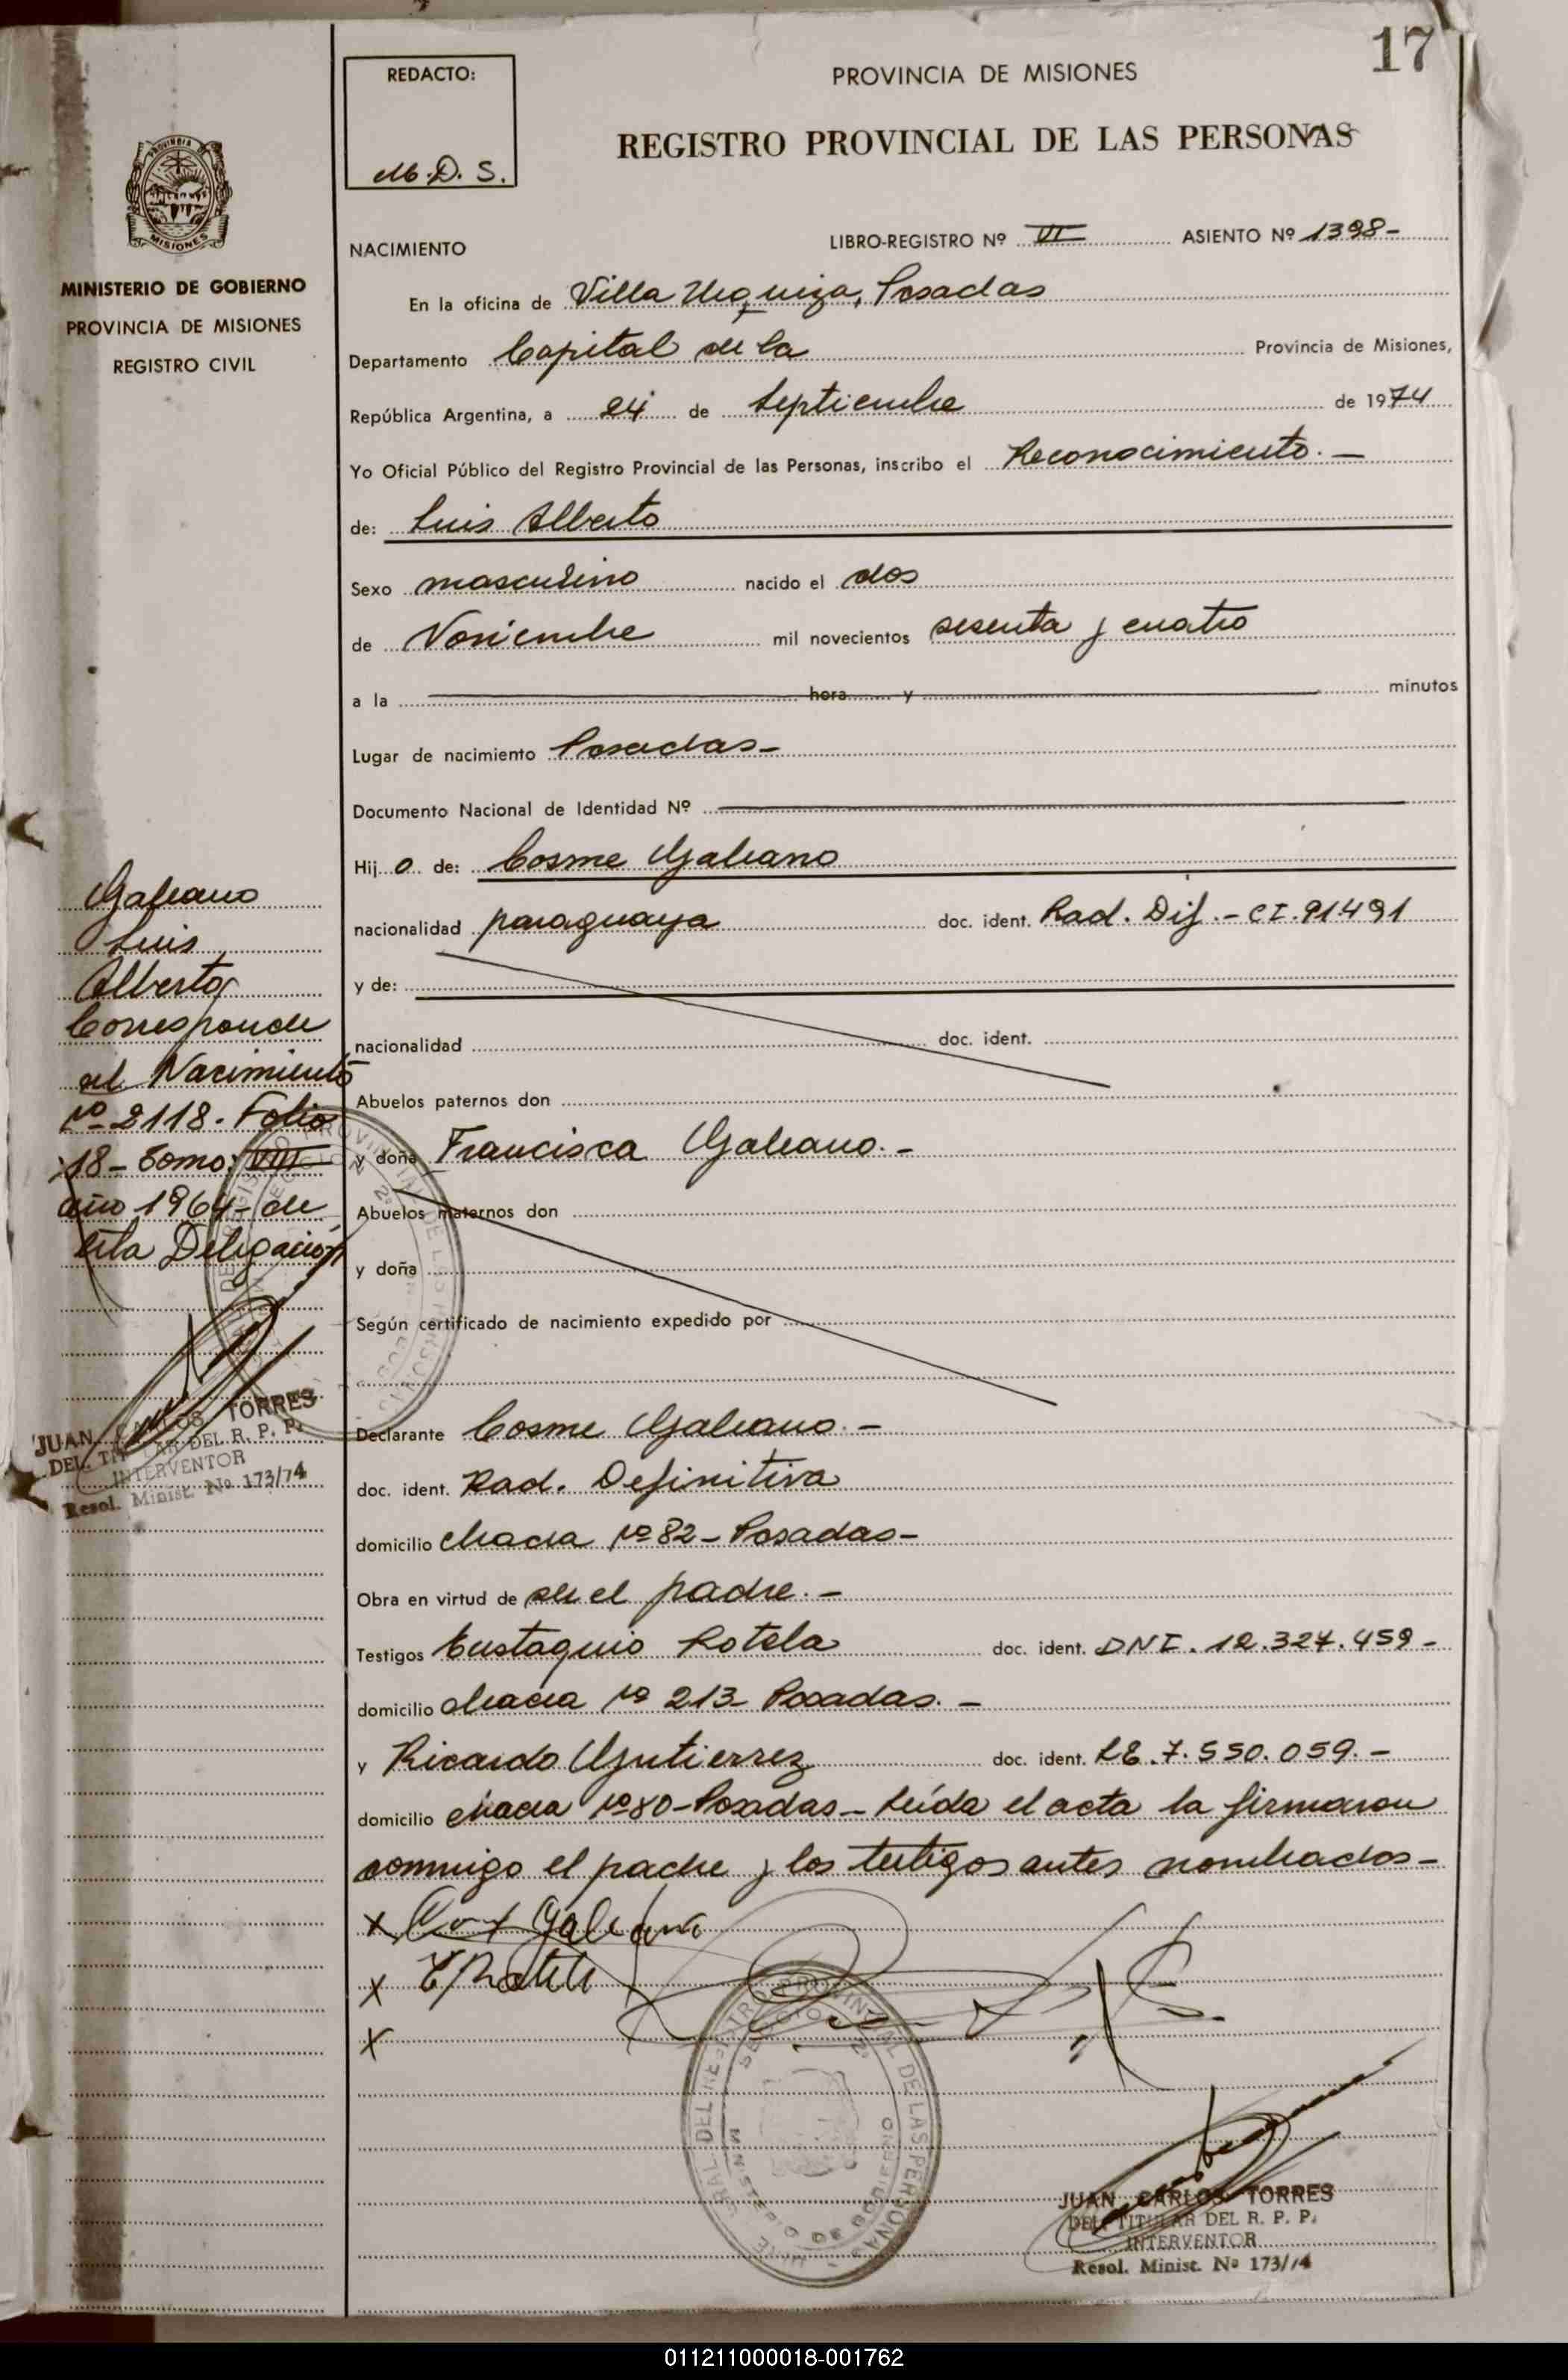 17
REDACTO:
M.D.S.
PROVINCIA DE MISIONES
REGISTRO PROVINCIAL DE LAS PERSONAS
PROVINCIA DE
MISIONES
MINISTERIO DE GOBIERNO
PROVINCIA DE MISIONES
REGISTRO CIVIL
NACIMIENTO
LIBRO-REGISTRO Nº VI ASIENTO Nº 1398-
En la oficina de Villa Urquiza, Posadas
Departamento Capital de la Provincia de Misiones,
República Argentina, a 24 de Septiembre de 1974
Yo Oficial Público del Registro Provincial de las Personas, inscribo el Reconocimiento.-
de: Luis Alberto
Sexo masculino nacido el dos
de Noviembre mil novecientos sesenta y cuatro
a la hora y minutos
Lugar de nacimiento Posadas-
Documento Nacional de Identidad Nº
Hij o de: Cosme Galeano
nacionalidad paraguaya doc. ident. Rad. Dif.- CI. 91491
y de:
nacionalidad doc. ident.
Abuelos paternos don
y doña Francisca Galeano.-
Abuelos maternos don
y doña
Según certificado de nacimiento expedido por
Declarante Cosme Galeano.-
doc. ident. Rad. Definitiva
domicilio chacra Nº 82- Posadas-
Obra en virtud de ser el padre.-
Testigos Eustaquio Rotela doc. ident. DNI. 12.327.459-
domicilio chacra Nº 213- Posadas.-
y Ricardo Gutierrez doc. ident. LE. 7.550.059.-
domicilio chacra Nº 80-Posadas- Leída el acta la firmaron
conmigo el padre y los testigos antes nombrados-
Galeano
Luis
Alberto
Corresponde
al Nacimiento
Nº 2118. Folio
18- Tomo: VIII
año 1964- de
esta Delegación
JUAN CARLOS TORRES
DEL. TITULAR DEL R. P. P.
INTERVENTOR
Resol. Minist. Nº 173/74
x Galeano
x
x
JUAN CARLOS TORRES
DEL. TITULAR DEL R. P. P.
INTERVENTOR
Resol. Minist. Nº 173/74
011211000018-001762